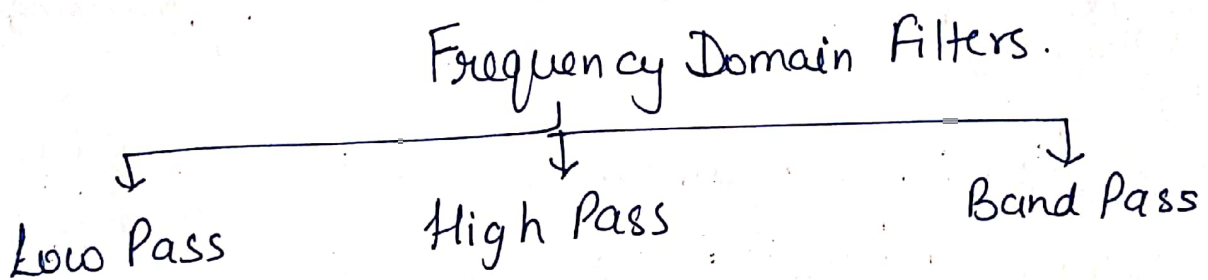 Frequency Domain Filters.
Low Pass
High Pass
Band Pass